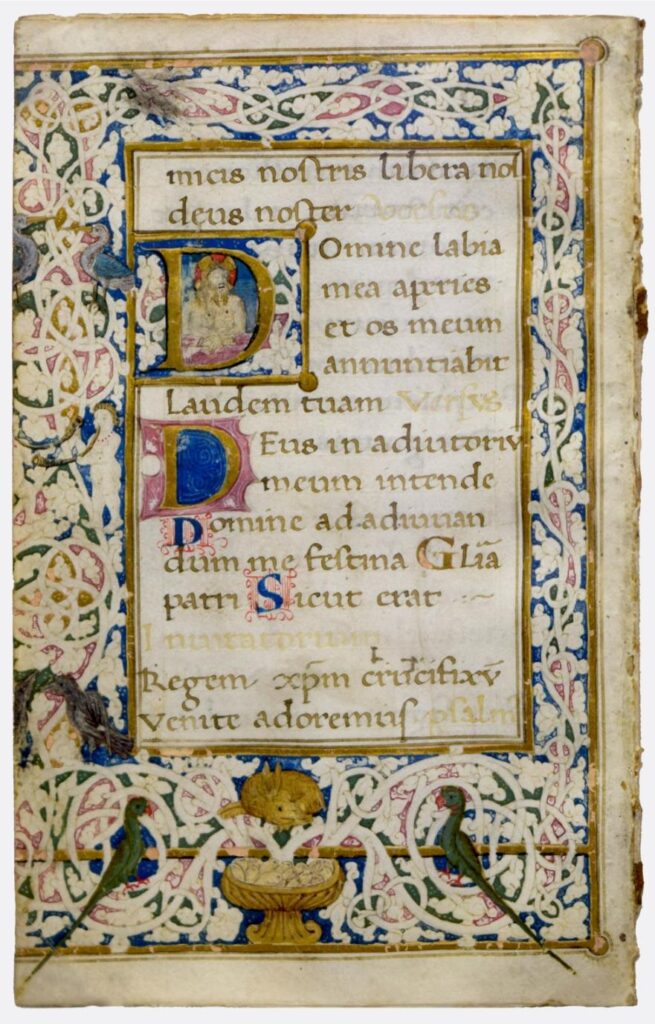 micis nostris libera nos
deus noster
Domine labia
mea aperies
et os meum
annuntiabit
Laudem tuam Versus
DEus in adiutoriũ
meum intende
Domine ad adiuuan
dum me festina Gliã
patri Sicut erat
Inuitatorium
Regem xp̃m crucifixũ
Venite adoremus psalm